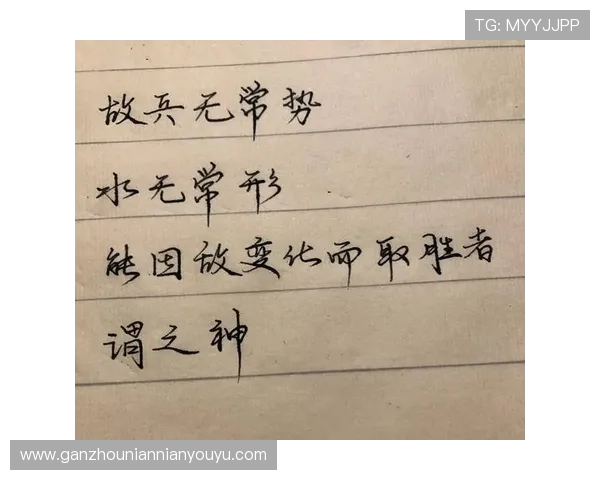 TG: MYYJJPP
故兵无常势
水无常形
能因敌变化而取胜者
谓之神
www.ganzhouniannianyouyu.com